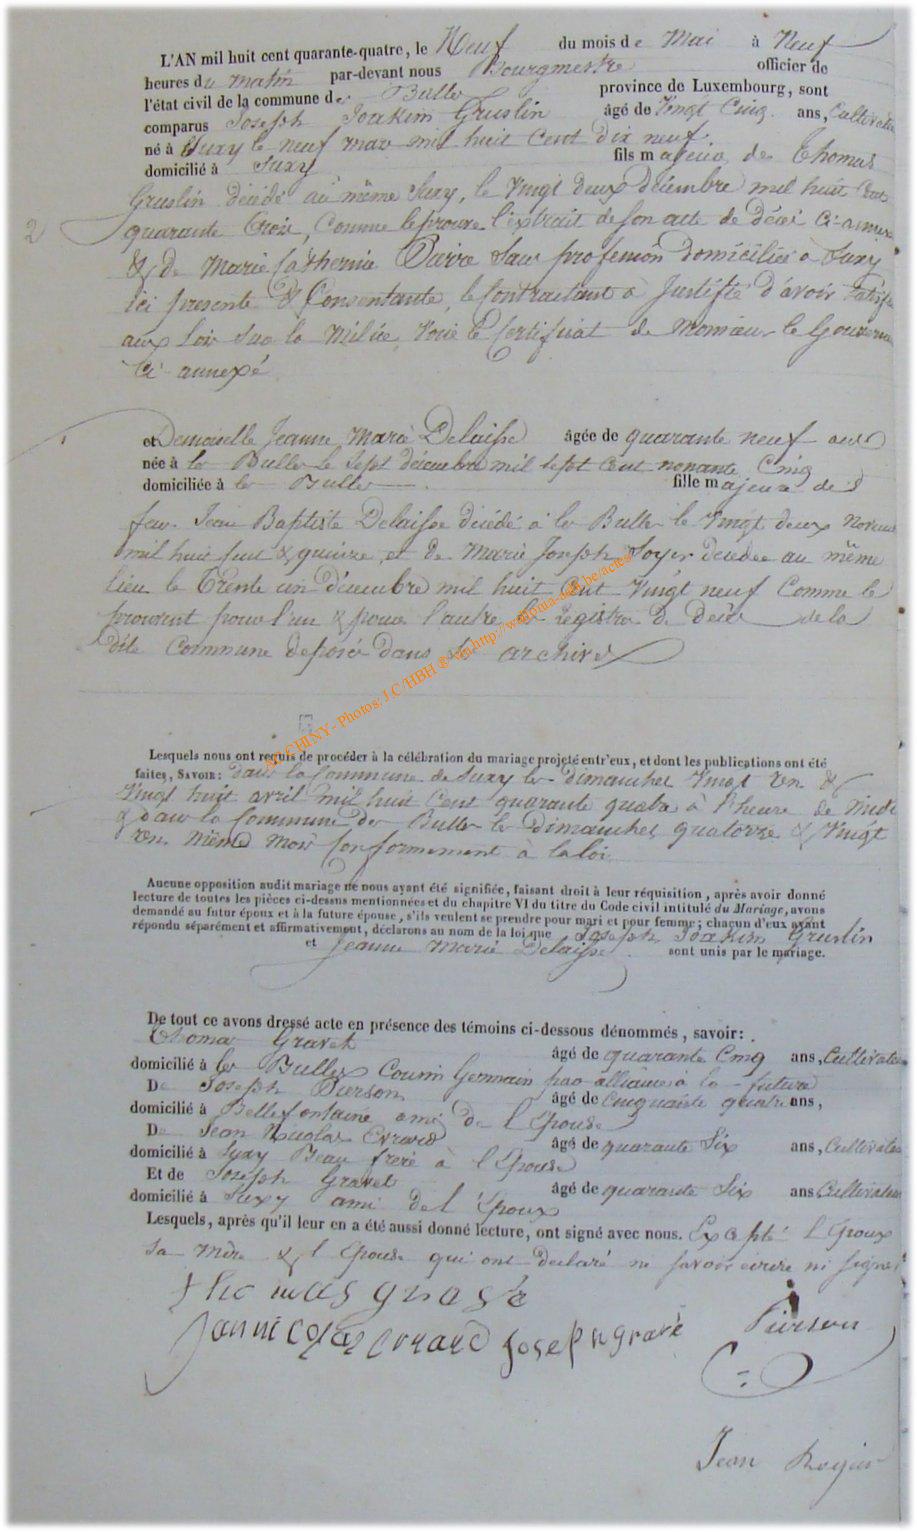 L'AN mil huit cent quarante-quatre, le Neuf du mois de Mai à Neuf
heures du matin par-devant nous Bourgmestre officier de
l'état civil de la commune de Bulles province de Luxembourg, sont
comparus Joseph Joakim Gruslin âgé de Vingt Cinq ans, Cultivate
né à Suxy le neuf mars mil huit Cent dix neuf.
domicilié à Suxy fils majeur de Thomas
Gruslin décédé au même Suxy, le Vingt deux décembre mil huit Cent
2 quarante Trois, Comme le prouve l'extrait de son acte de décès Ci-annexé
& de Marie Catherine Pierre Sans profession domiciliée à Suxy
ici presente & Consentante, le Contractant a Justifié d'avoir satisfa
aux Lois sur la Milice, Voir le Certificat de Monsieur le Gouverne
Ci-annexé
et Demoiselle Jeanne Marie Delaisse âgée de quarante neuf ans
née à les Bulles le Sept décembre mil sept Cent nonante Cinq
domiciliée à les Bulles fille majeure de
feu Jean Baptiste Delaisse décédé à les Bulles le Vingt deux Novem
mil huit Cent & quinze, et de Marie Joseph Soyer décédée au même
lieu le Trente un décembre mil huit Cent Vingt neuf Comme le
prouvent pour l'un & pour l'autre le Régistre de Décès de la
dite Commune déposé dans les archives
ARCHINY - Photos: J.C/HBH ® via http://wallonia-asbl.be/actes
Lesquels nous ont requis de procéder à la célébration du mariage projeté entr'eux, et dont les publications ont été
faites, SAVOIR: dans la Commune de Suxy les dimanches Vingt Un &
Vingt huit avril mil huit Cent quarante quatre à l'heure de Midi
& dans la Commune des Bulles les Dimanches quatorze & Vingt
Un même mois Conformement à la loi
Aucune opposition audit mariage ne nous ayant été signifiée, faisant droit à leur réquisition, après avoir donné
lecture de toutes les pièces ci-dessus mentionnées et du chapitre VI du titre du Code civil intitulé du Mariage, avons
demandé au futur époux et à la future épouse, s'ils veulent se prendre pour mari et pour femme; chacun d'eux ayant
répondu séparément et affirmativement, déclarons au nom de la loi que Joseph Joakim Gruslin
et Jeanne Marie Delaisse sont unis par le mariage.
De tout ce avons dressé acte en présence des témoins ci-dessous dénommés, savoir:
Thomas Gravet âgé de quarante Cinq ans, Cultivateu
domicilié à les Bulles Cousin Germain par alliance à la future
De Joseph Pierson âgé de Cinquante quatre ans,
domicilié à Bellefontaine ami de l'Epouse
De Jean Nicolas Evrard âgé de quarante Six ans, Cultivate
domicilié à Suxy Beau frère à l'Epouse
Et de Joseph Gravet âgé de quarante Six ans Cultivateu
domicilié à Suxy ami de l'Epoux
Lesquels, après qu'il leur en a été aussi donné lecture, ont signé avec nous. Excepté l'Epoux
Sa Mère & l'Epouse qui ont declaré ne savoir écrire ni signer
thomas gravé
Jan nicolas evrard Joseph gravé Pierson
Jean Rogier